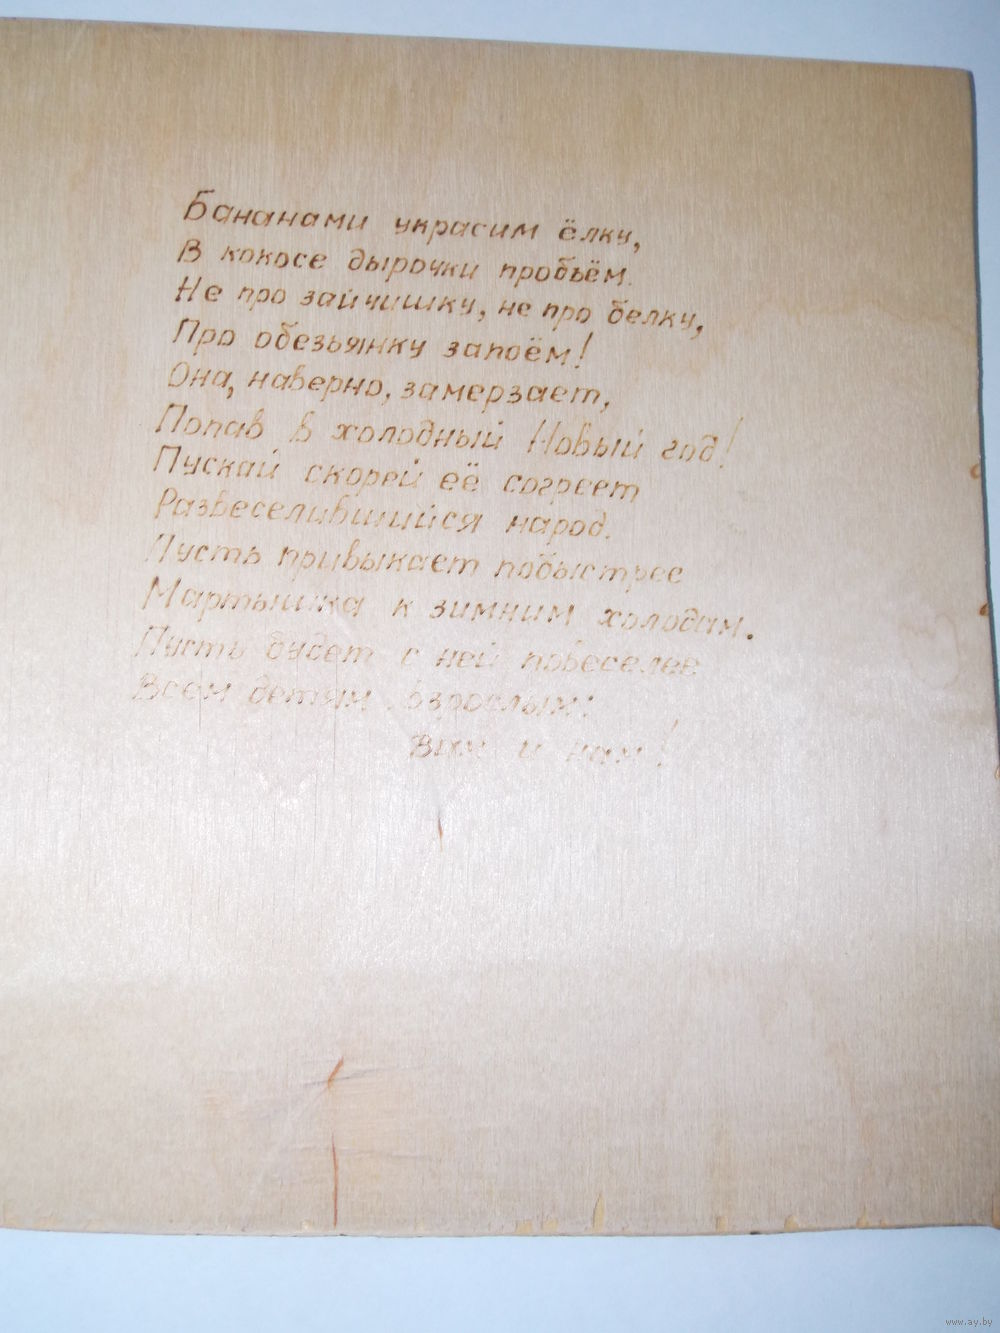 Бананами украсим ёлку,
В кокосе дырочки пробьём.
Не про зайчишку, не про белку,
Про обезьянку запоём!
Она, наверно, замерзает,
Попав в холодный Новый год!
Пускай скорей её согреет
Развеселившийся народ.
Пусть привыкает побыстрее
Мартышка к зимним холодам.
Пусть будет с ней повеселее
Всем детям, взрослым:
Вам и нам!
www.ay.by